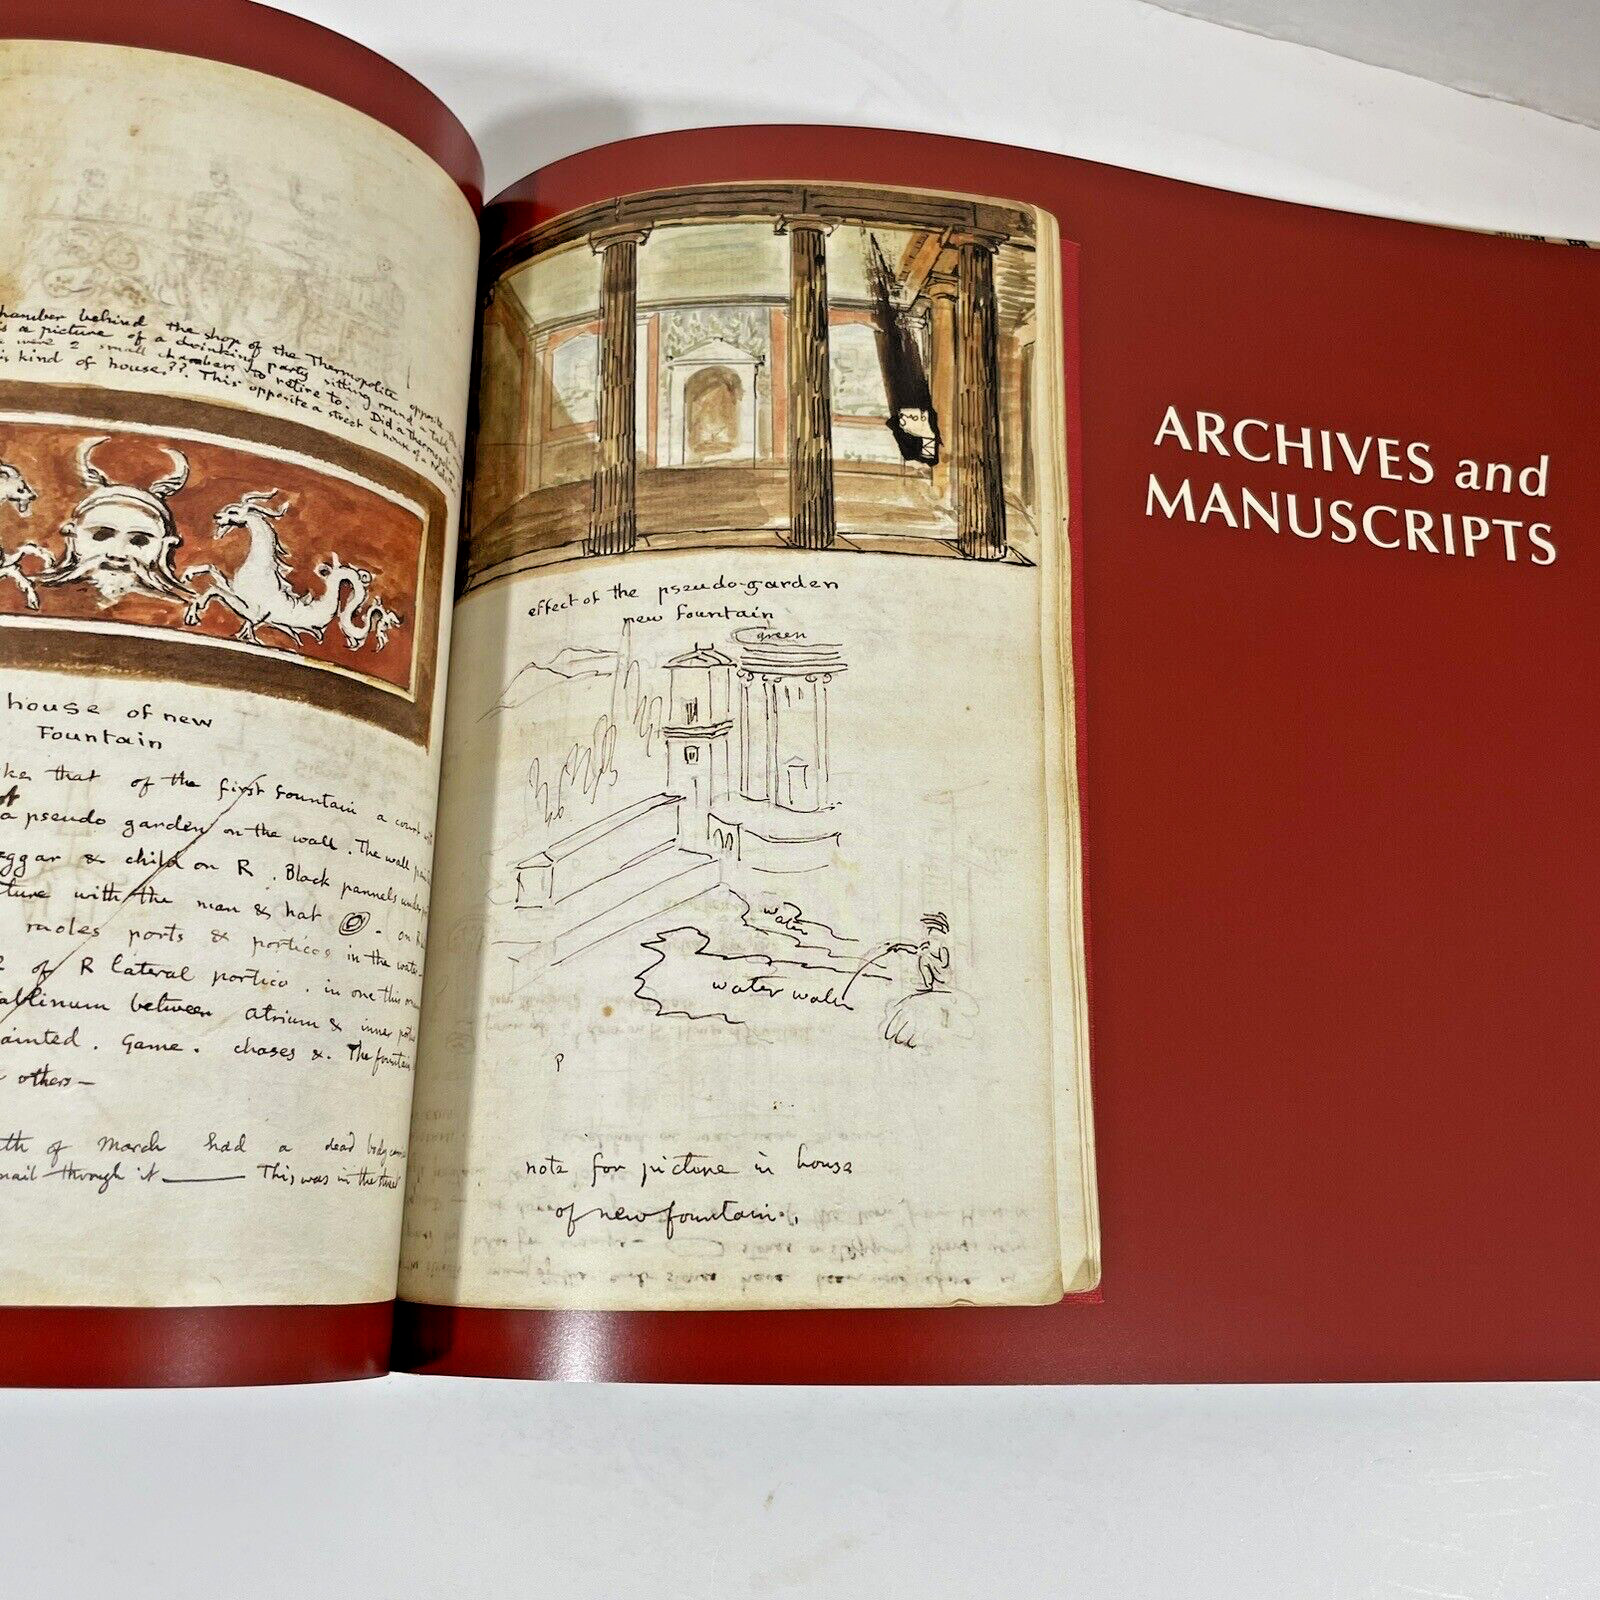 hamber behind the shop of the Thermopolite opposite
is a picture of a drinking party sitting round a table
were 2 small chambers to retire to. Did a thermopoli
is kind of house?? This opposite a street a house of a
house of new
Fountain
kes that of the first fountain a court
a pseudo garden on the wall. The wall
eggar & child on R. Black pannels under
ture with the man & hat on R
moles ports & porticos in the water
2 of R lateral portico. in one this
tablinum between atrium & inner
ainted. Game. chases &. The fountain
others—
th of March had a dead body
nail through it —— This was in the street
effect of the pseudo-garden
new fountain
green
water
water water
P
note for picture in house
of new fountain.
ARCHIVES and
MANUSCRIPTS